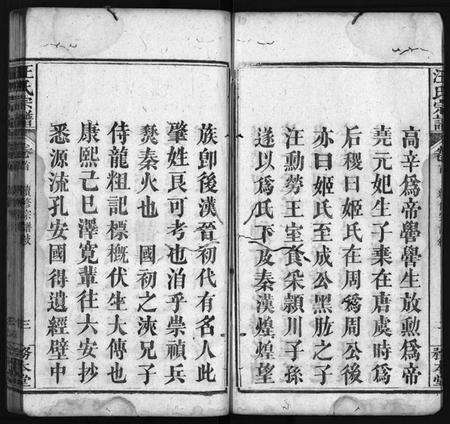 高辛爲帝嚳嚳生放勳爲帝
堯元妃生子棄在唐虞時爲
后稷曰姬氏在周爲周公後
亦曰姬氏至成公黑肱之子
汪勳勞王室食采潁川子孫
遂以爲氏下及秦漢煌煌望
族卽後漢晉初代有名人此
肇姓良可考也洎乎崇禎兵
燹秦火也　國初之浹兄子
侍龍粗記標概伏生大傳也
康熙己巳澤寬輩往六安抄
悉源流孔安國得遺經壁中
汪氏宗譜
務本堂